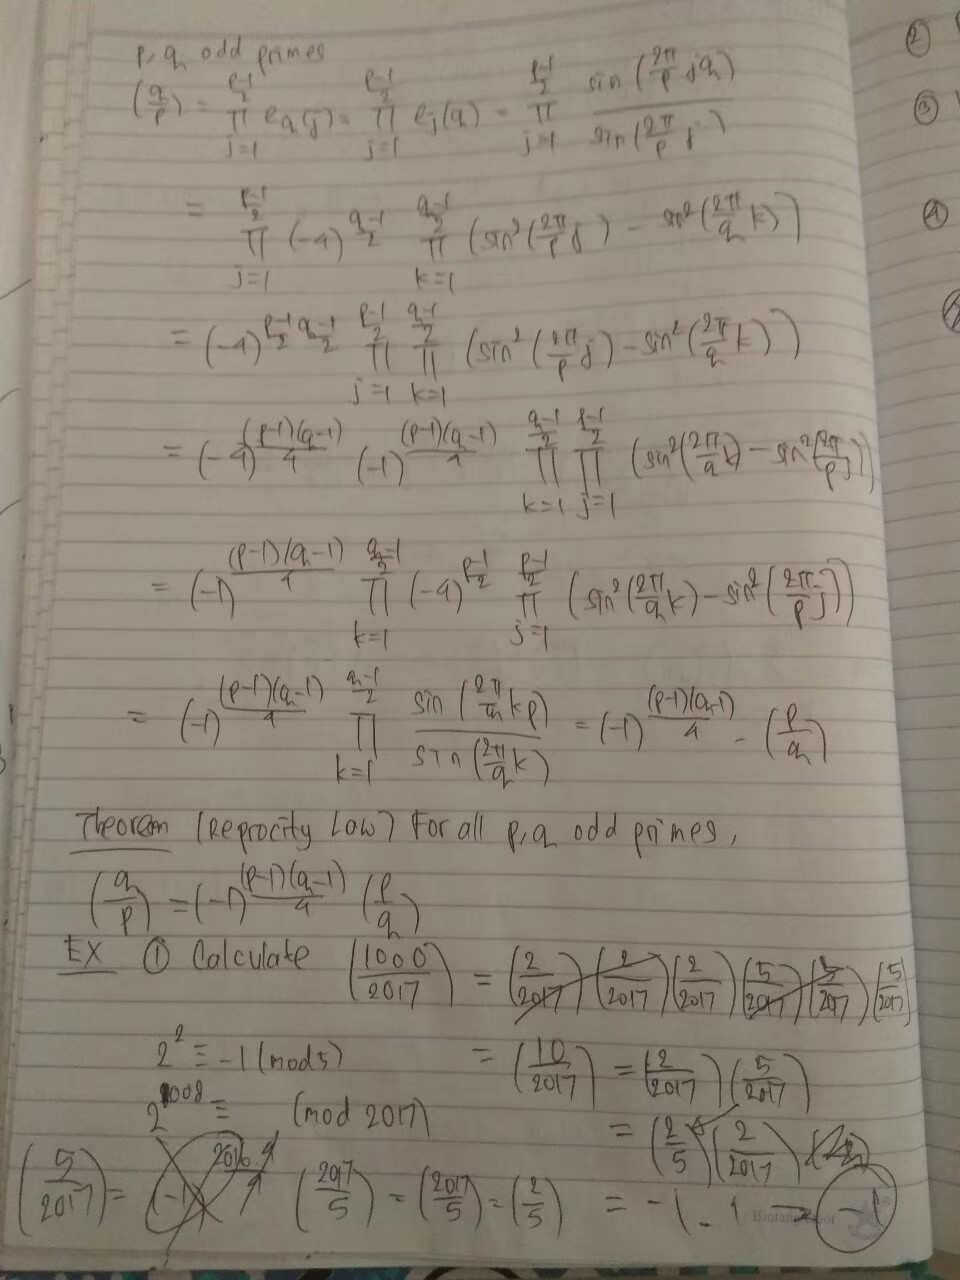 p, q odd primes
(q/p) = ∏_{j=1}^{p-1/2} e_q(j) = ∏_{j=1}^{p-1/2} e_j(q) = ∏_{j=1}^{p-1/2} sin(2π/p jq) / sin(2π/p j)
= ∏_{j=1}^{p-1/2} (-4)^{q-1/2} ∏_{k=1}^{q-1/2} (sin²(2π/p j) - sin²(2π/q k))
= (-4)^{p-1/2 q-1/2} ∏_{j=1}^{p-1/2} ∏_{k=1}^{q-1/2} (sin²(2π/p j) - sin²(2π/q k))
= (-4)^{(p-1)(q-1)/4} (-1)^{(p-1)(q-1)/4} ∏_{k=1}^{q-1/2} ∏_{j=1}^{p-1/2} (sin²(2π/q k) - sin²(2π/p j))
= (-1)^{(p-1)(q-1)/4} ∏_{k=1}^{q-1/2} (-4)^{p-1/2} ∏_{j=1}^{p-1/2} (sin²(2π/q k) - sin²(2π/p j))
= (-1)^{(p-1)(q-1)/4} ∏_{k=1}^{q-1/2} sin(2π/q kp) / sin(2π/q k) = (-1)^{(p-1)(q-1)/4} - (p/q)
Theorem (Reprocity Law) For all p, q odd primes,
(q/p) = (-1)^{(p-1)(q-1)/4} (p/q)
EX ① Calculate (1000/2017) = (2/2017)(2/2017)(2/2017)(5/2017)(5/2017)(5/2017)
2² ≡ -1 (mod 5) = (10/2017) = (2/2017)(5/2017)
2^{1008} ≡ (mod 2017) = (2/5)(2/2017)
(5/2017) = (2017/5) = (2017/5) = (2/5) = -1 . 1 → -1
②
③
④